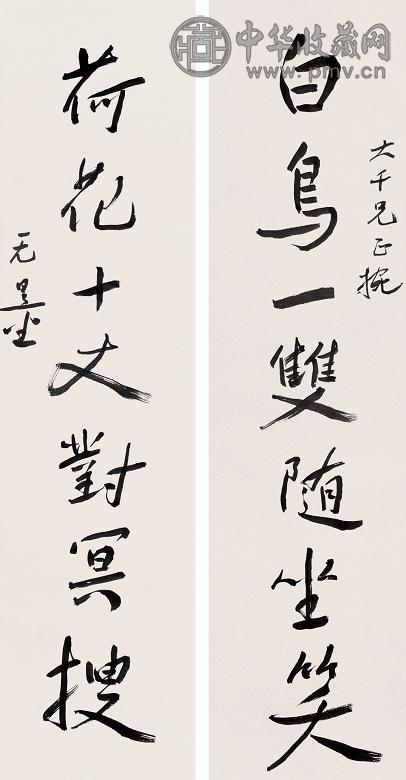 中华收藏网
www.pmv.cn
大千兄正捥
白鳥一雙随坐笑
荷花十丈對冥搜
无量